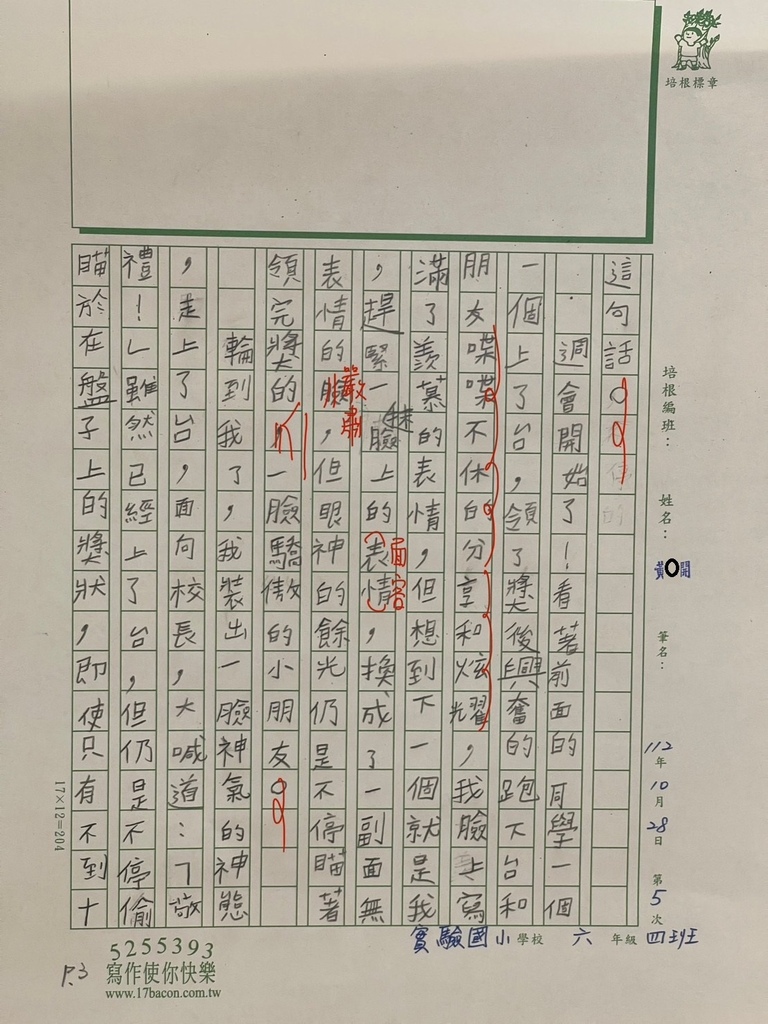 培根標章
培根編班：
姓名：
黃○開
筆名：
112年10月28日 第5次
實驗國小學校 六年級 四班
這句話。
週會開始了！看著前面的同學一個
一個上了台，領了獎後興奮的跑下台和
朋友喋喋不休的分享和炫耀，我臉上寫
滿了羨慕的表情，但想到下一個就是我
，趕緊一抹臉上的表情，換成了一副面無
面容
表情的臉，但眼神的餘光仍是不停瞄著
嚴肅
領完獎的，一臉驕傲的小朋友。
輪到我了，我裝出一臉神氣的神態
，走上了台，面向校長，大喊道：「敬
禮！」雖然已經上了台，但仍是不停偷
瞄於在盤子上的獎狀，即使只有不到十
17×12=204
P.3
5255393
寫作使你快樂
www.17bacon.com.tw